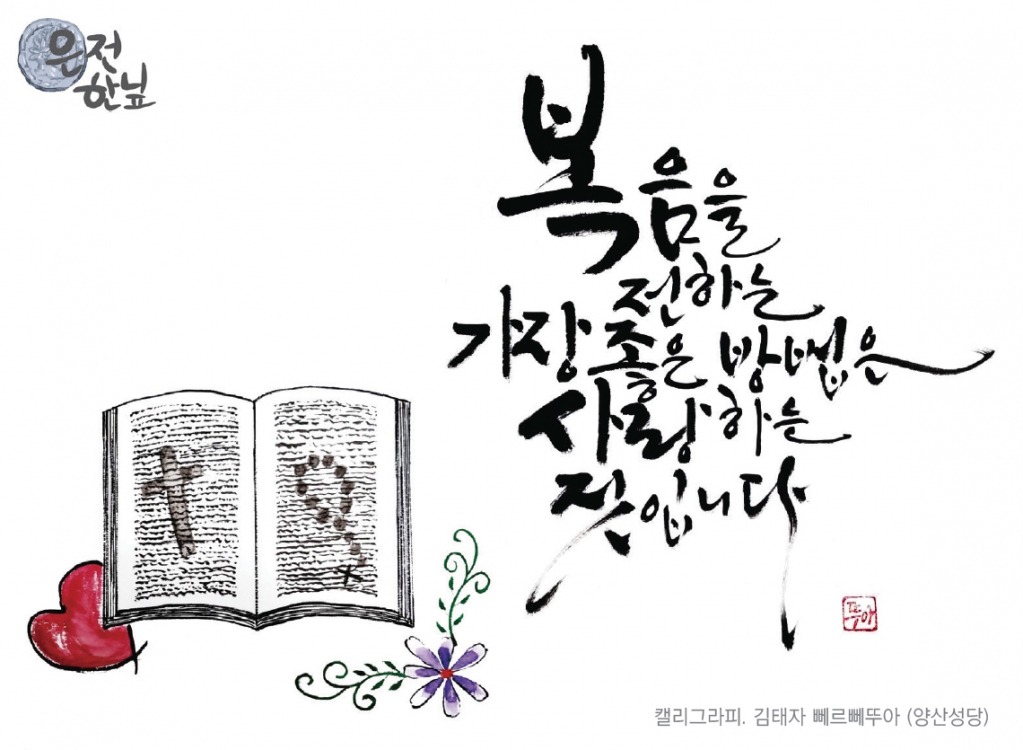 은전
한닢
복음을
전하는
가장 좋은 방법은
사랑하는
것입니다
뚜아
캘리그라피. 김태자 뻬르뻬뚜아 (양산성당)